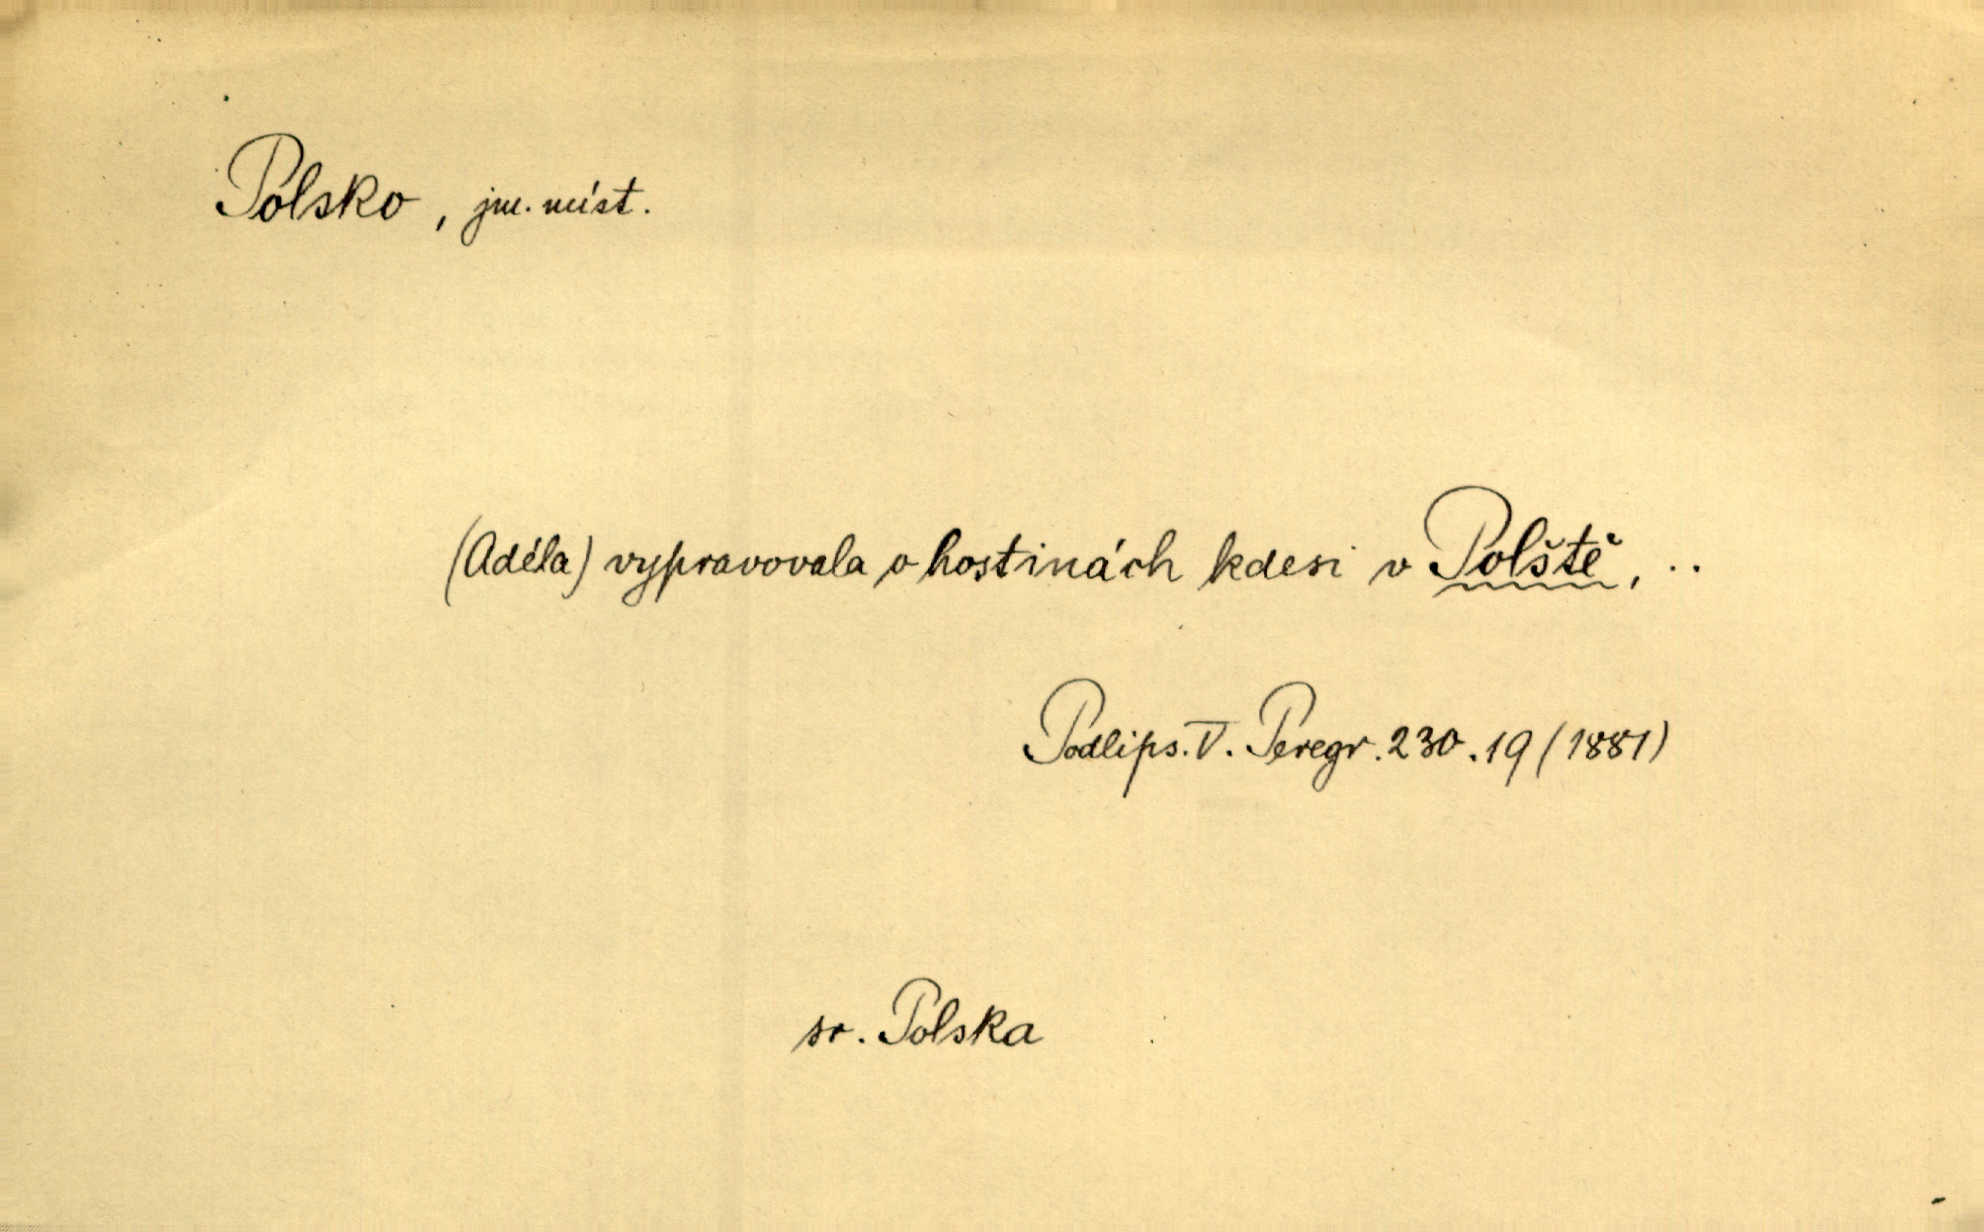 Polsko, jm. míst.
(Adéla) vypravovala o hostinách kdesi v Polště, ..
Podlips. V. Peregr. 230.19 (1881)
sr. Polska